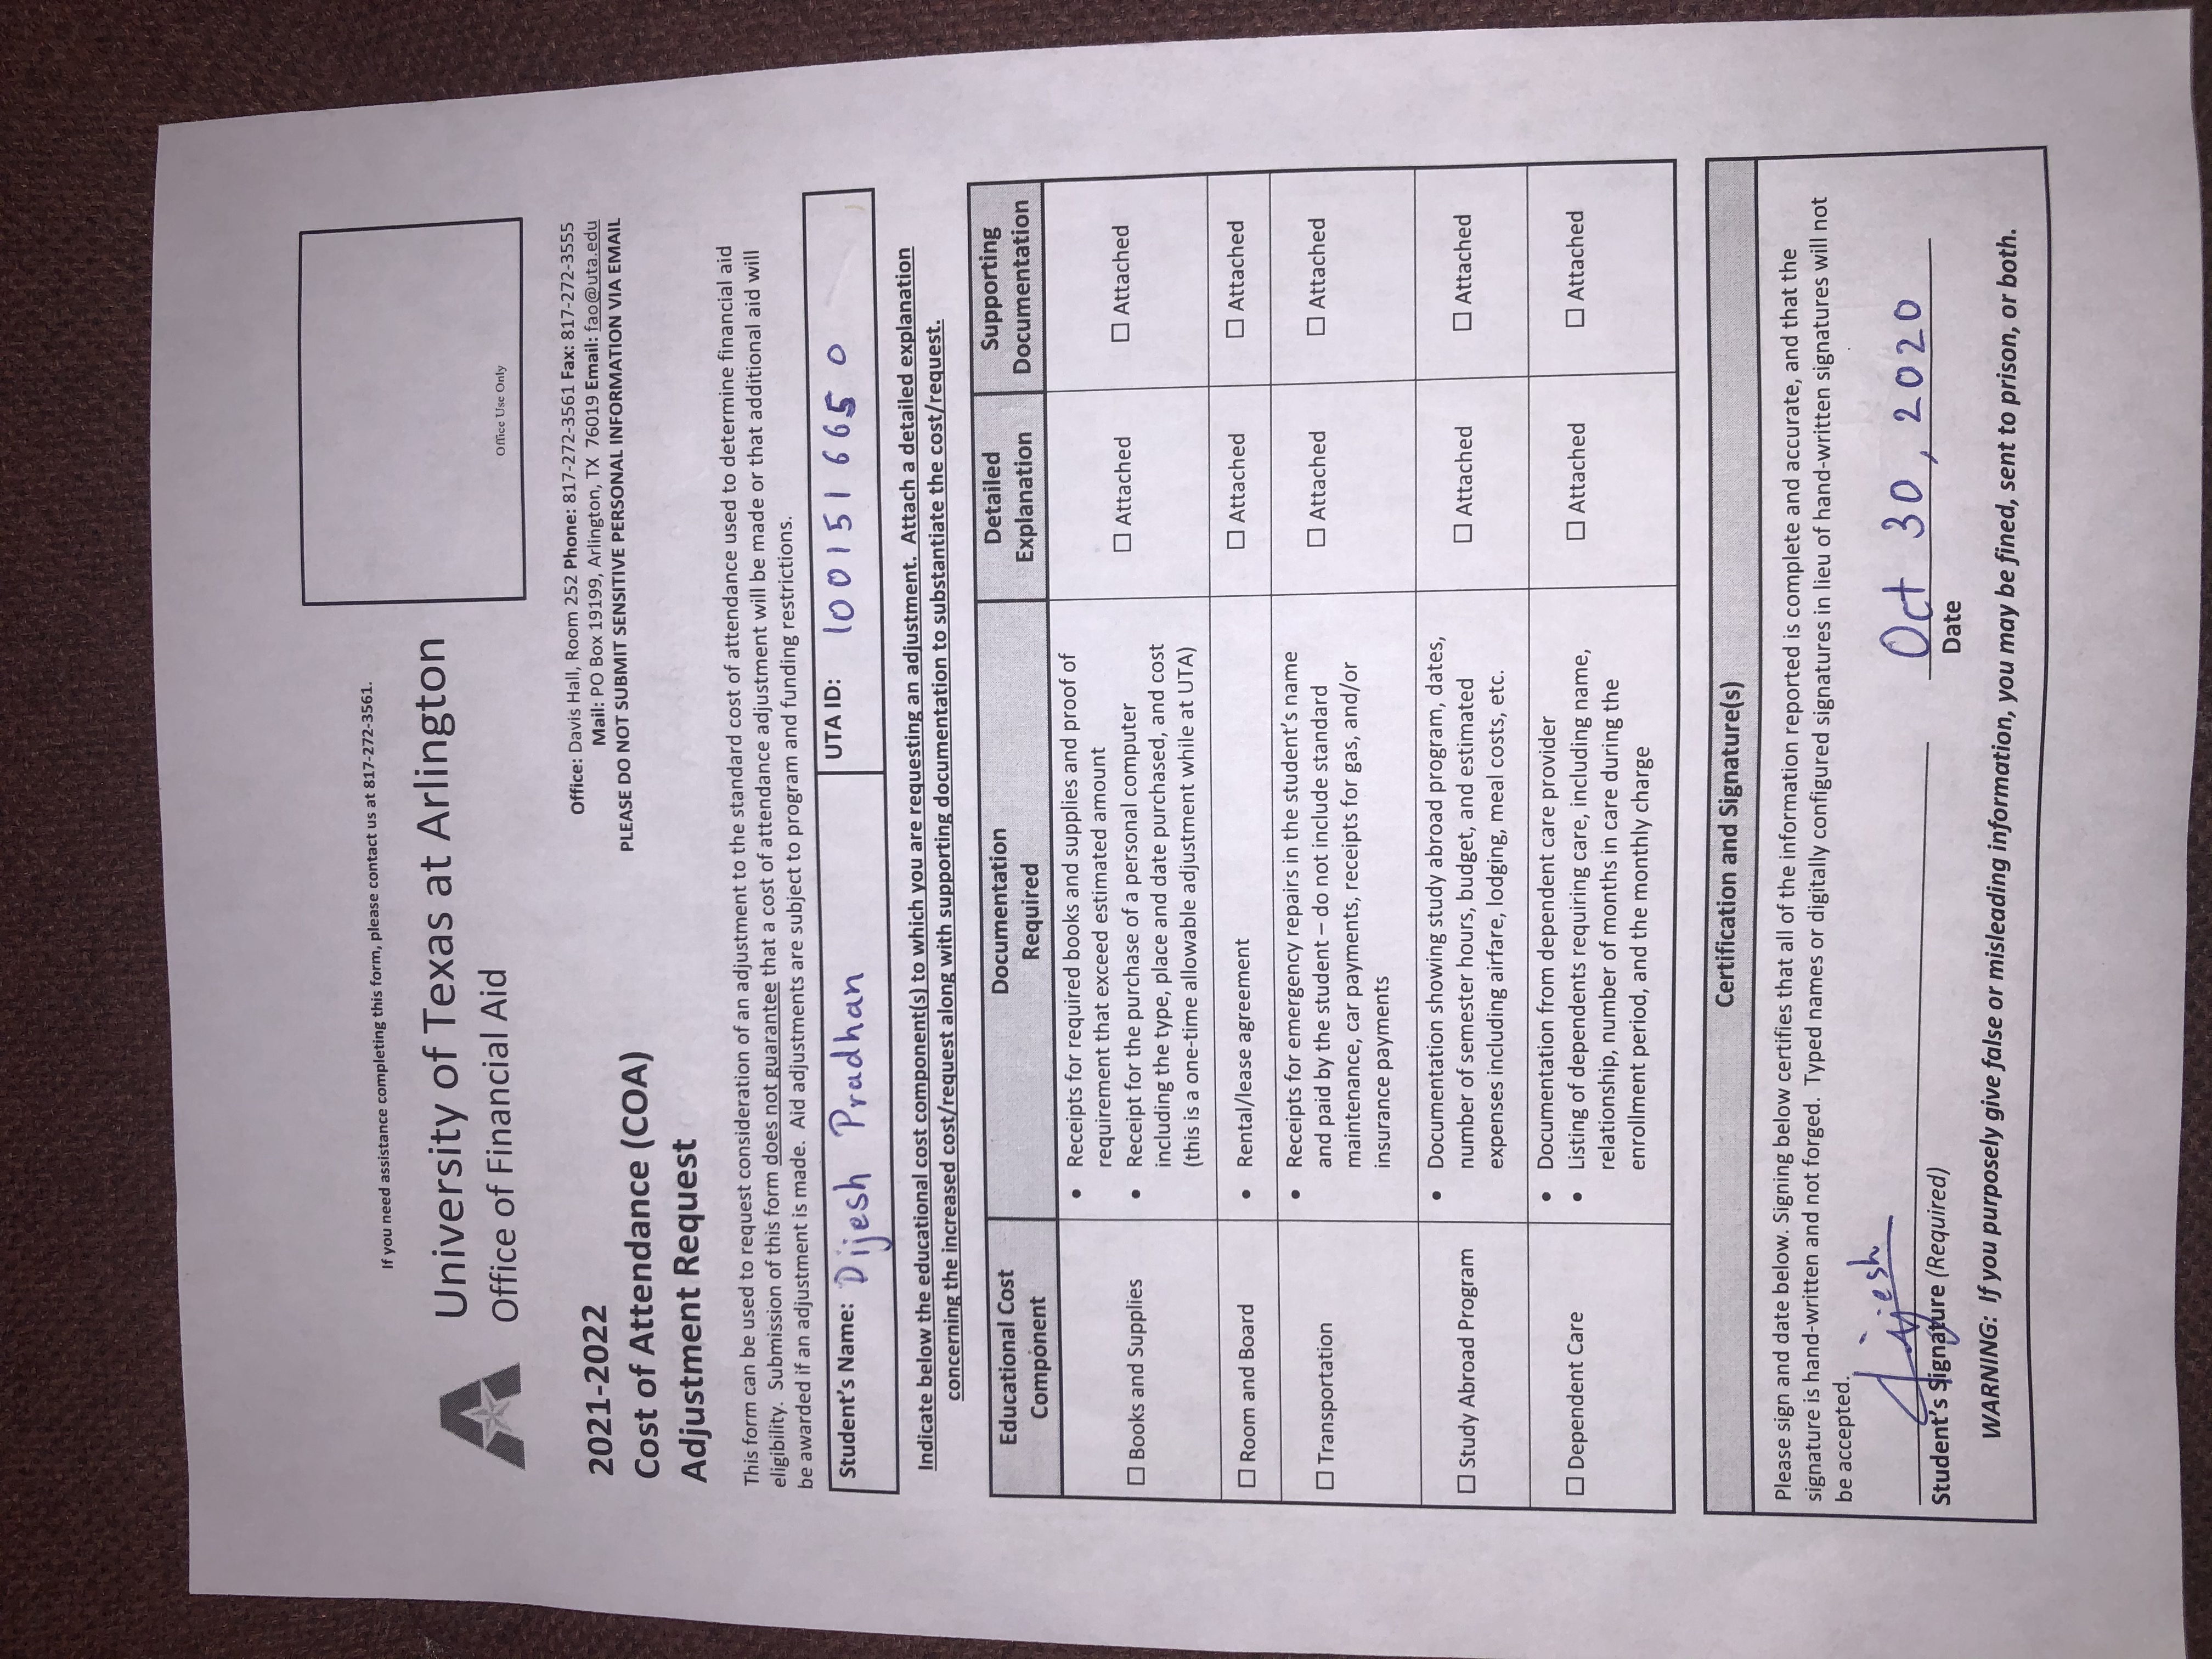 If you need assistance completing this form, please contact us at 817-272-3561.
University of Texas at Arlington
Office of Financial Aid
Office Use Only
2021-2022
Cost of Attendance (COA)
Adjustment Request
Office: Davis Hall, Room 252 Phone: 817-272-3561 Fax: 817-272-3555
Mail: PO Box 19199, Arlington, TX 76019 Email: fao@uta.edu
PLEASE DO NOT SUBMIT SENSITIVE PERSONAL INFORMATION VIA EMAIL
This form can be used to request consideration of an adjustment to the standard cost of attendance used to determine financial aid
eligibility. Submission of this form does not guarantee that a cost of attendance adjustment will be made or that additional aid will
be awarded if an adjustment is made. Aid adjustments are subject to program and funding restrictions.
Student's Name: Dijesh Pradhan
UTA ID: 1001516650
Indicate below the educational cost component(s) to which you are requesting an adjustment. Attach a detailed explanation
concerning the increased cost/request along with supporting documentation to substantiate the cost/request.
Educational Cost
Component
Documentation
Required
Detailed
Explanation
Supporting
Documentation
☐ Books and Supplies
• Receipts for required books and supplies and proof of
requirement that exceed estimated amount
• Receipt for the purchase of a personal computer
including the type, place and date purchased, and cost
(this is a one-time allowable adjustment while at UTA)
☐ Attached
☐ Attached
☐ Room and Board
• Rental/lease agreement
☐ Attached
☐ Attached
☐ Transportation
• Receipts for emergency repairs in the student's name
and paid by the student – do not include standard
maintenance, car payments, receipts for gas, and/or
insurance payments
☐ Attached
☐ Attached
☐ Study Abroad Program
• Documentation showing study abroad program, dates,
number of semester hours, budget, and estimated
expenses including airfare, lodging, meal costs, etc.
☐ Attached
☐ Attached
☐ Dependent Care
• Documentation from dependent care provider
• Listing of dependents requiring care, including name,
relationship, number of months in care during the
enrollment period, and the monthly charge
☐ Attached
☐ Attached
Certification and Signature(s)
Please sign and date below. Signing below certifies that all of the information reported is complete and accurate, and that the
signature is hand-written and not forged. Typed names or digitally configured signatures in lieu of hand-written signatures will not
be accepted.
Dijesh
Oct 30, 2020
Student's Signature (Required)
Date
WARNING: If you purposely give false or misleading information, you may be fined, sent to prison, or both.